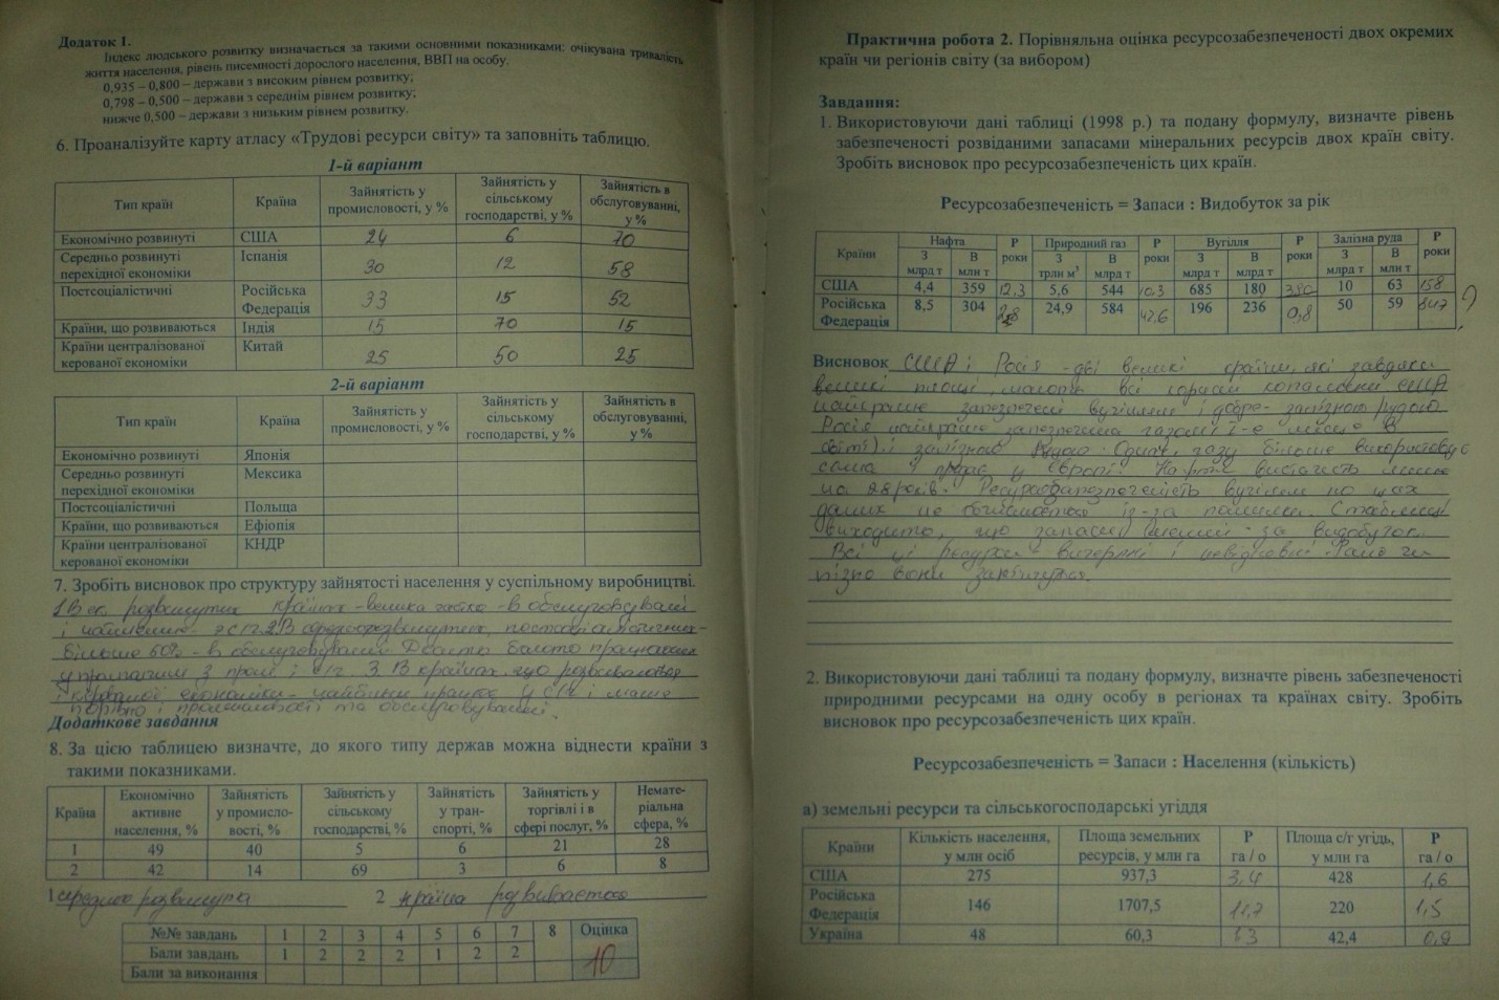 Додаток 1.
Індекс людського розвитку визначається за такими основними показниками: очікувана тривалість
життя населення, рівень писемності дорослого населення, ВВП на особу.
0,935 – 0,800 – держави з високим рівнем розвитку;
0,798 – 0,500 – держави з середнім рівнем розвитку;
нижче 0,500 – держави з низьким рівнем розвитку.
6. Проаналізуйте карту атласу «Трудові ресурси світу» та заповніть таблицю.
1-й варіант
Тип країн Країна Зайнятість у промисловості, у % Зайнятість у сільському господарстві, у % Зайнятість в обслуговуванні, у %
Економічно розвинуті США 24 6 70
Середньо розвинуті перехідної економіки Іспанія 30 12 58
Постсоціалістичні Російська Федерація 33 15 52
Країни, що розвиваються Індія 15 70 15
Країни централізованої керованої економіки Китай 25 50 25
2-й варіант
Тип країн Країна Зайнятість у промисловості, у % Зайнятість у сільському господарстві, у % Зайнятість в обслуговуванні, у %
Економічно розвинуті Японія
Середньо розвинуті перехідної економіки Мексика
Постсоціалістичні Польща
Країни, що розвиваються Ефіопія
Країни централізованої керованої економіки КНДР
7. Зробіть висновок про структуру зайнятості населення у суспільному виробництві.
1 В ек. розвинутих країнах - велика частка - в обслуговувані
і найменше - у с/г. 2. В середньорозвинутих, постсоціалістичних -
більше 50% - в обслуговуванні. Досить багато працюючих
у пром і с/г. 3. В країнах, що розвиваються
і керованої економіки - найбільше працює у с/г і майже
порівно і промисловості та обслуговуванні.
Додаткове завдання
8. За цією таблицею визначте, до якого типу держав можна віднести країни з
такими показниками.
Країна Економічно активне населення, % Зайнятість у промисло- вості, % Зайнятість у сільському господарстві, % Зайнятість у тран- спорті, % Зайнятість у торгівлі і в сфері послуг, % Немате- ріальна сфера, %
1 49 40 5 6 21 28
2 42 14 69 3 6 8
1 середньо розвинута 2 країна розвивається
№№ завдань 1 2 3 4 5 6 7 8 Оцінка
Бали завдань 1 2 2 2 1 2 2 10
Бали за виконання
Практична робота 2. Порівняльна оцінка ресурсозабезпеченості двох окремих
країн чи регіонів світу (за вибором)
Завдання:
1. Використовуючи дані таблиці (1998 р.) та подану формулу, визначте рівень
забезпеченості розвіданими запасами мінеральних ресурсів двох країн світу.
Зробіть висновок про ресурсозабезпеченість цих країн.
Ресурсозабезпеченість = Запаси : Видобуток за рік
Країни Нафта Р роки Природний газ Р роки Вугілля Р роки Залізна руда Р роки
З млрд т В млн т З трлн м³ В млрд т З млрд т В млрд т З млрд т В млн т
США 4,4 359 12,3 5,6 544 10,3 685 180 380 10 63 158
Російська Федерація 8,5 304 28 24,9 584 42,6 196 236 0,8 50 59 847 ?
Висновок США і Росія - дві великі країни, які завдяки
великі площі, мають всі корисні копалини. США
найкраще забезпечені вугіллям і добре - залізною рудою.
Росія найкраще забезпечена газом (1-е місце в
світі) і залізною рудою. Однак, газу більше використовує
сама і продає у Європі. Нафти вистачить лише
на 28 років. Ресурсозабезпеченість вугіллям по цих
даних не обчислюється із-за помилки. Стабільні
виходить, що запаси менші за видобуток.
Всі ці ресурси вичерпні і невідновні. Рано чи
пізно вони закінчуться.
2. Використовуючи дані таблиці та подану формулу, визначте рівень забезпеченості
природними ресурсами на одну особу в регіонах та країнах світу. Зробіть
висновок про ресурсозабезпеченість цих країн.
Ресурсозабезпеченість = Запаси : Населення (кількість)
а) земельні ресурси та сільськогосподарські угіддя
Країни Кількість населення, у млн осіб Площа земельних ресурсів, у млн га Р га / о Площа с/г угідь, у млн га Р га / о
США 275 937,3 3,4 428 1,6
Російська Федерація 146 1707,5 11,7 220 1,5
Україна 48 60,3 1,3 42,4 0,9